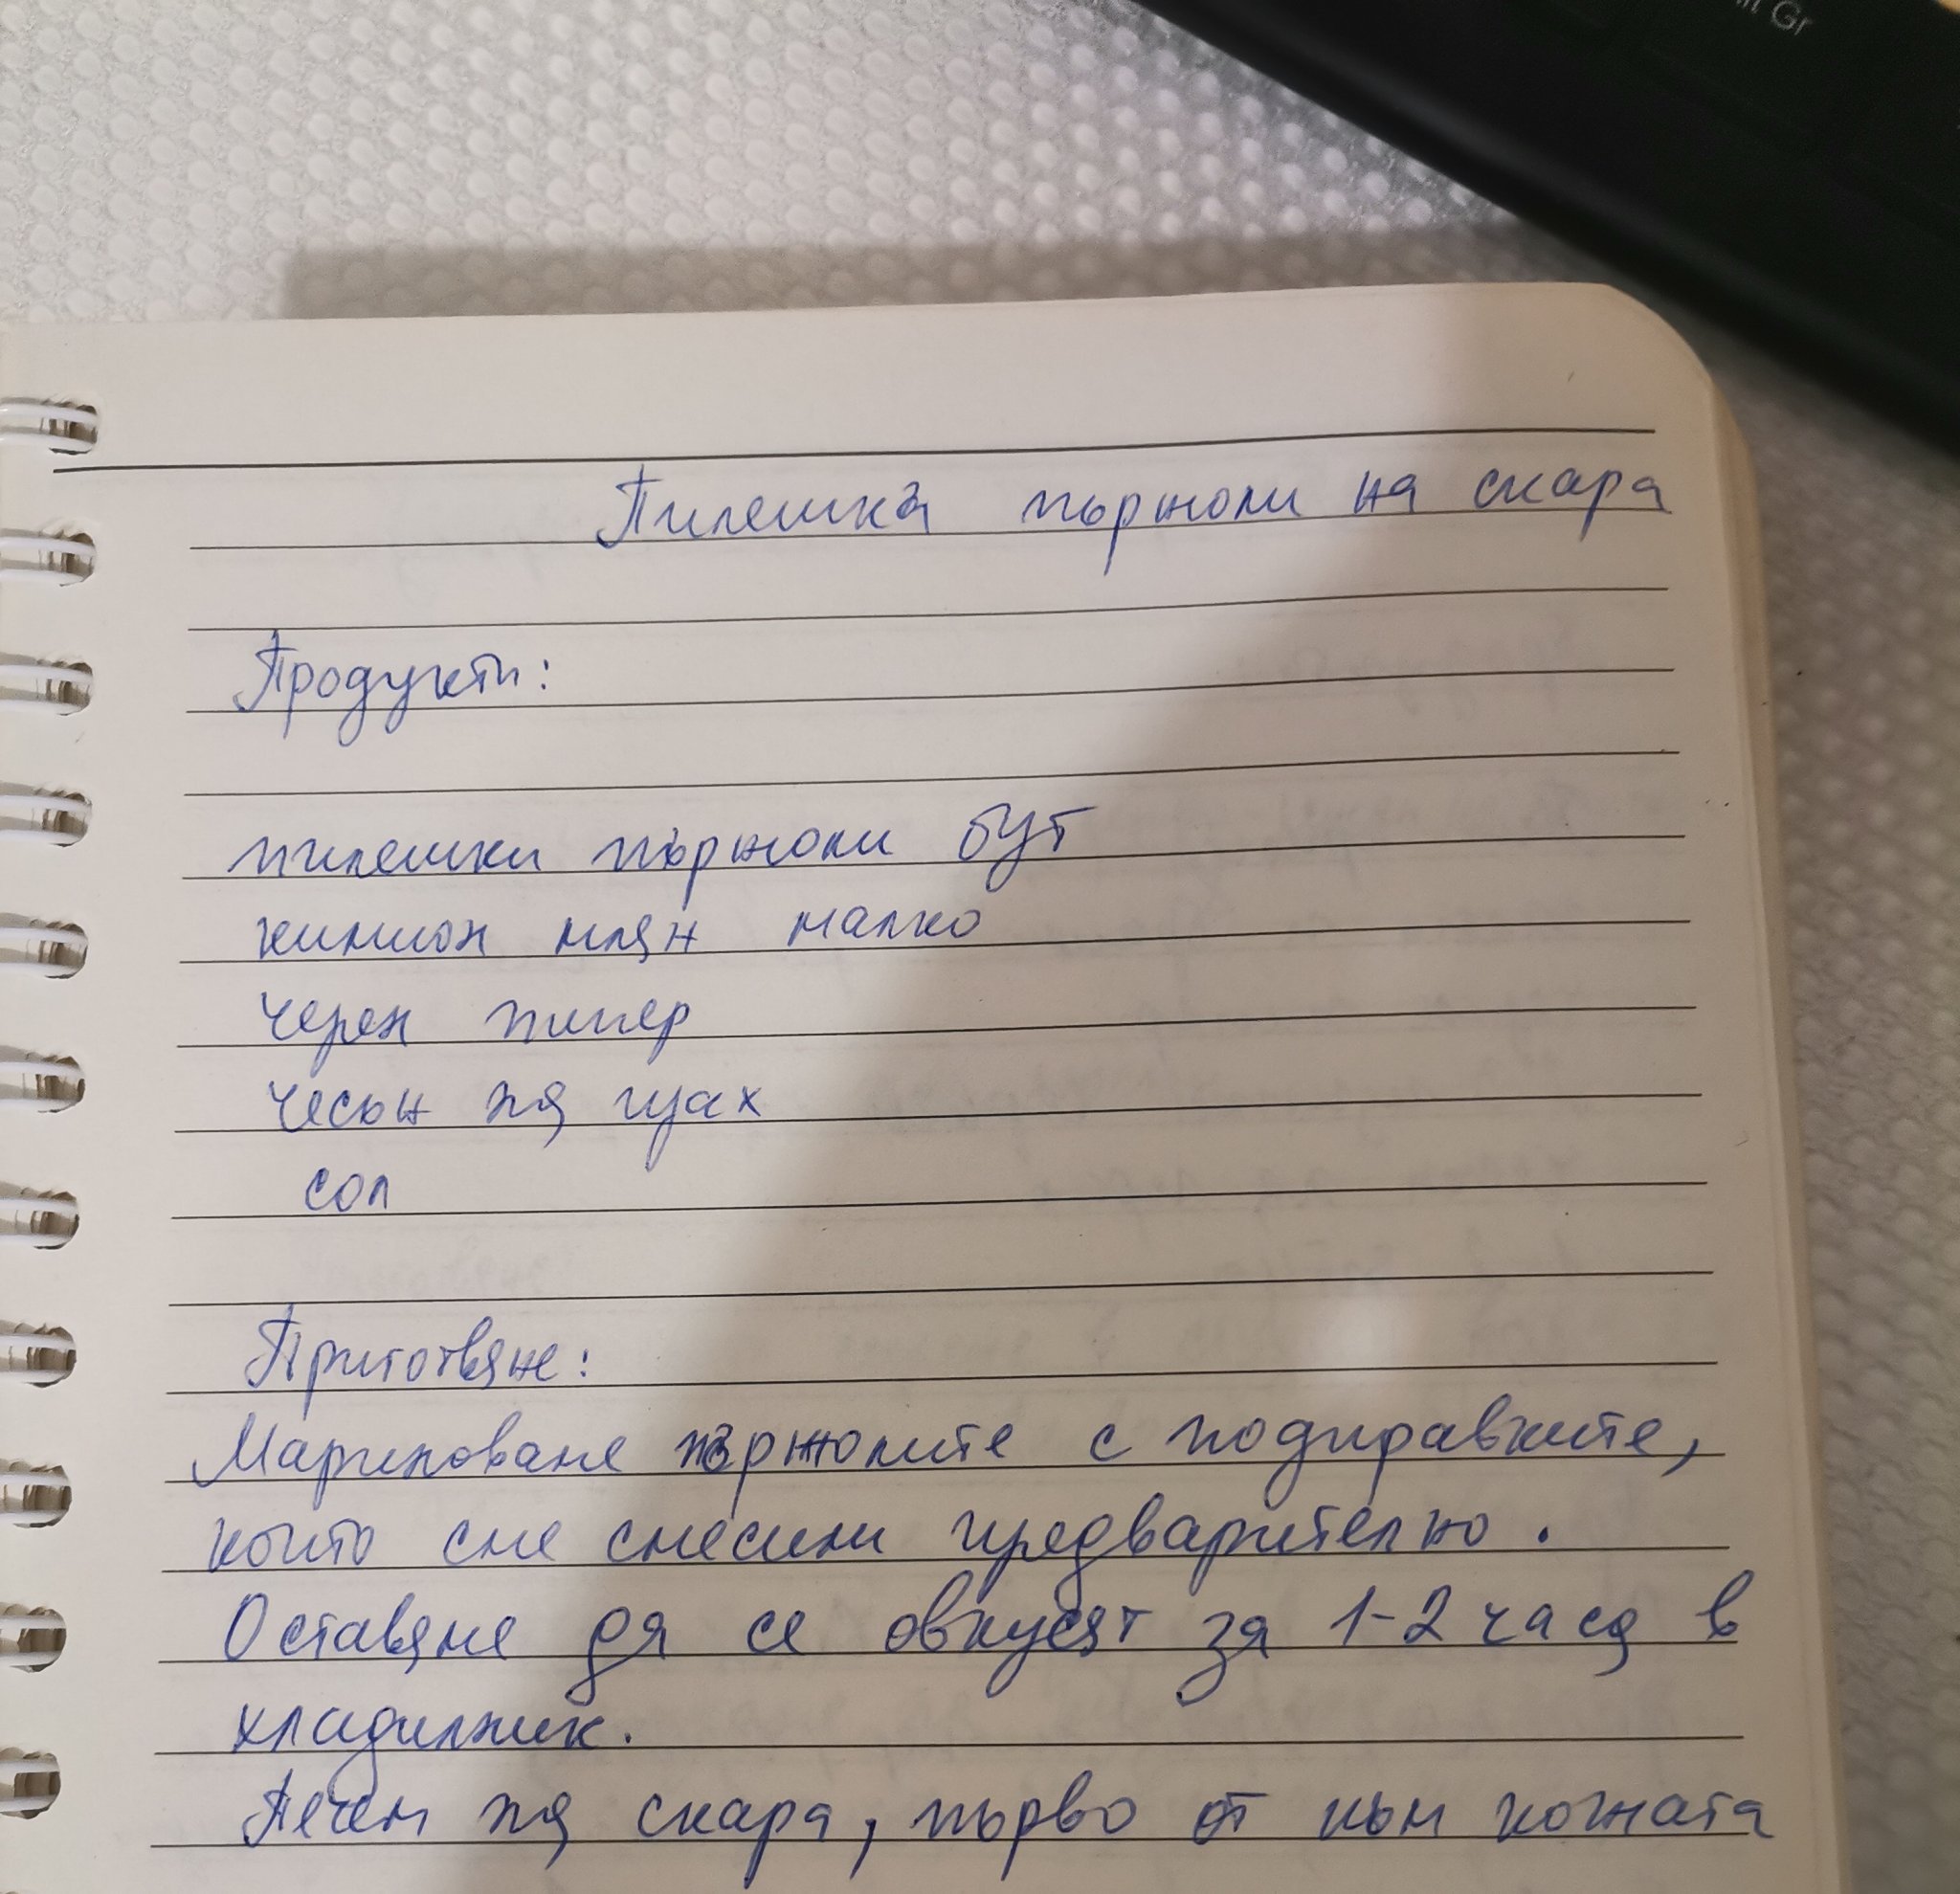 ın Gr
Пилешка пържоли на скара
Продукти:
пилешки пържоли бут
кимион млян малко
черен пипер
чесън на прах
сол
Приготвяне:
Мариноване пържолите с подправките,
които сме смесили предварително.
Оставяне да се овкусят за 1-2 часа в
хладилник.
Печем на скара, първо от към кожата